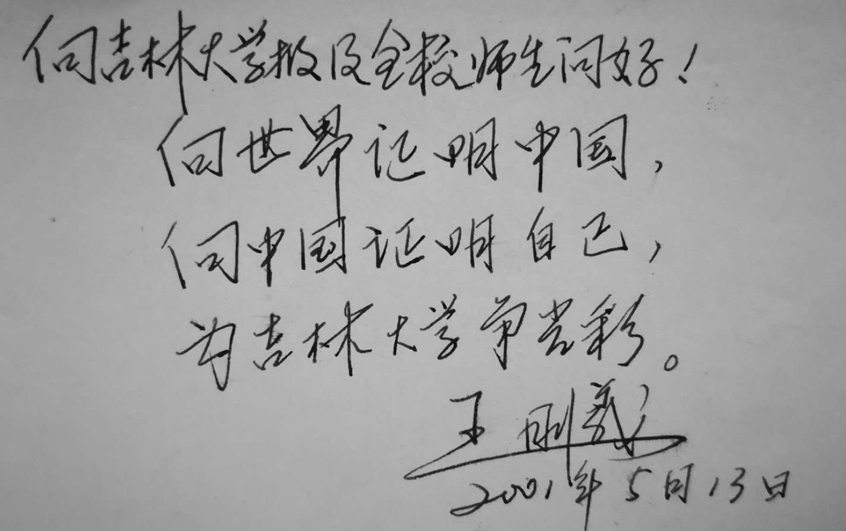 向吉林大学报及全校师生问好！
向世界证明中国，
向中国证明自己，
为吉林大学争光彩。
王刚义
2001年5月13日